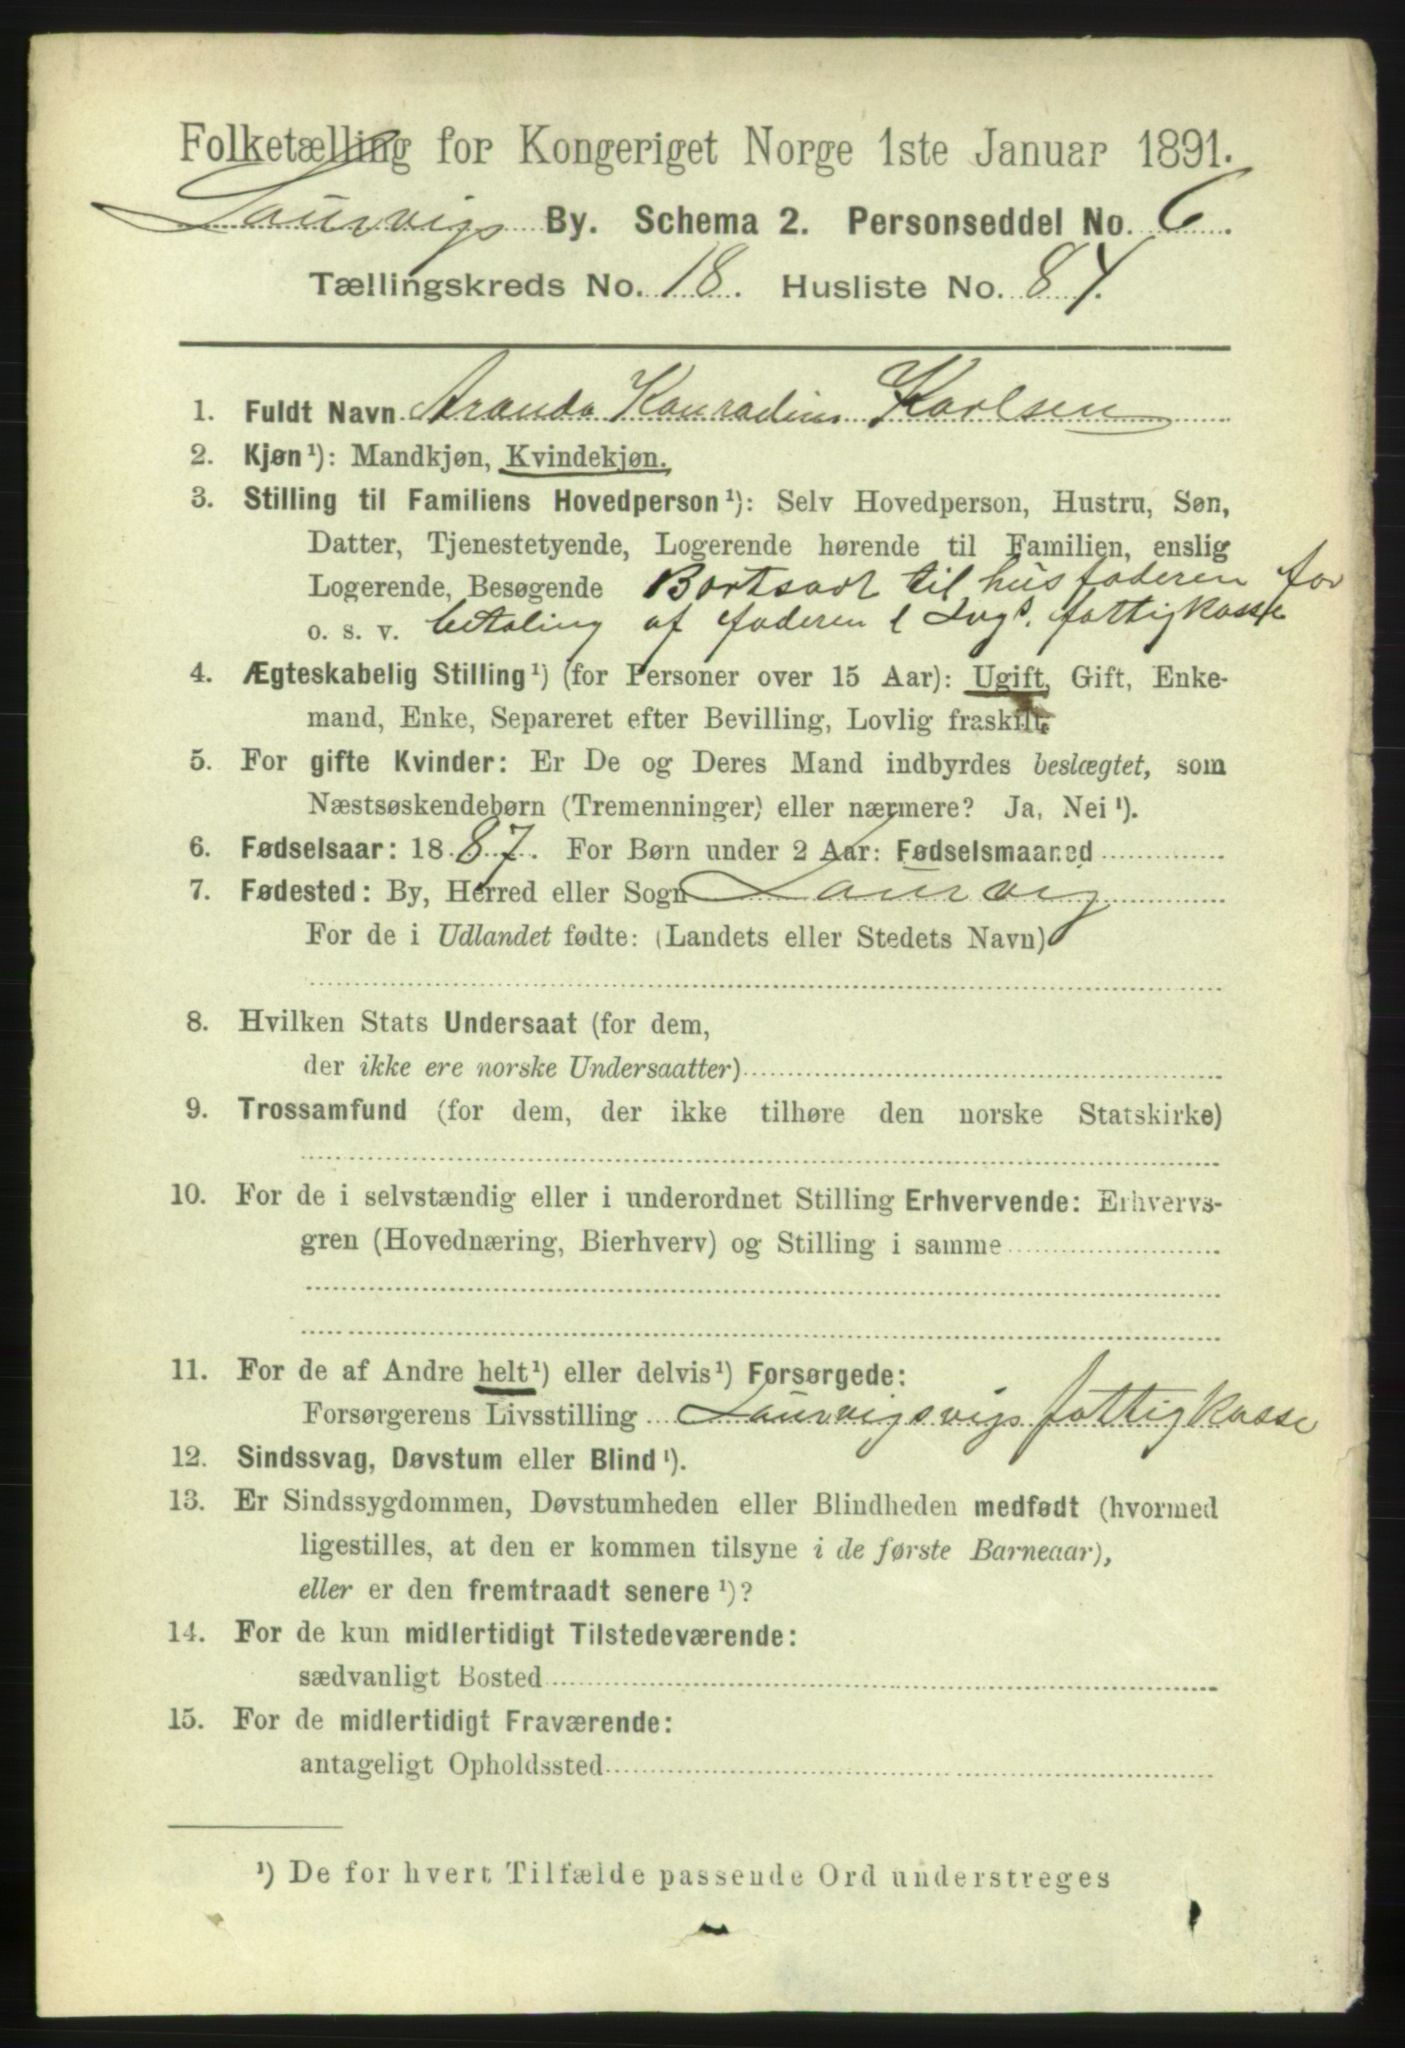 Folketælling for Kongeriget Norge 1ste Januar 1891.
Laurvigs By. Schema 2. Personseddel No. 6.
Tællingskreds No. 18. Husliste No. 84.
1. Fuldt Navn Aranda Konradine Karlsen
2. Kjøn¹): Mandkjøn, Kvindekjøn.
3. Stilling til Familiens Hovedperson¹): Selv Hovedperson, Hustru, Søn,
Datter, Tjenestetyende, Logerende hørende til Familien, enslig
Logerende, Besøgende Bortsadt til husfaderen for
o. s. v. betaling af faderen & Lvgs. fattigkasse
4. Ægteskabelig Stilling¹) (for Personer over 15 Aar): Ugift, Gift, Enke-
mand, Enke, Separeret efter Bevilling, Lovlig fraskilt.
5. For gifte Kvinder: Er De og Deres Mand indbyrdes beslægtet, som
Næstsøskendebørn (Tremenninger) eller nærmere? Ja, Nei¹).
6. Fødselsaar: 1887. For Børn under 2 Aar: Fødselsmaaned
7. Fødested: By, Herred eller Sogn Laurvig
For de i Udlandet fødte: (Landets eller Stedets Navn)
8. Hvilken Stats Undersaat (for dem,
der ikke ere norske Undersaatter)
9. Trossamfund (for dem, der ikke tilhøre den norske Statskirke)
10. For de i selvstændig eller i underordnet Stilling Erhvervende: Erhvervs-
gren (Hovednæring, Bierhverv) og Stilling i samme
11. For de af Andre helt¹) eller delvis¹) Forsørgede:
Forsørgerens Livsstilling Laurvigsvigs fattigkasse
12. Sindssvag, Døvstum eller Blind¹).
13. Er Sindssygdommen, Døvstumheden eller Blindheden medfødt (hvormed
ligestilles, at den er kommen tilsyne i de første Barneaar),
eller er den fremtraadt senere¹)?
14. For de kun midlertidigt Tilstedeværende:
sædvanligt Bosted
15. For de midlertidigt Fraværende:
antageligt Opholdssted
¹) De for hvert Tilfælde passende Ord understreges